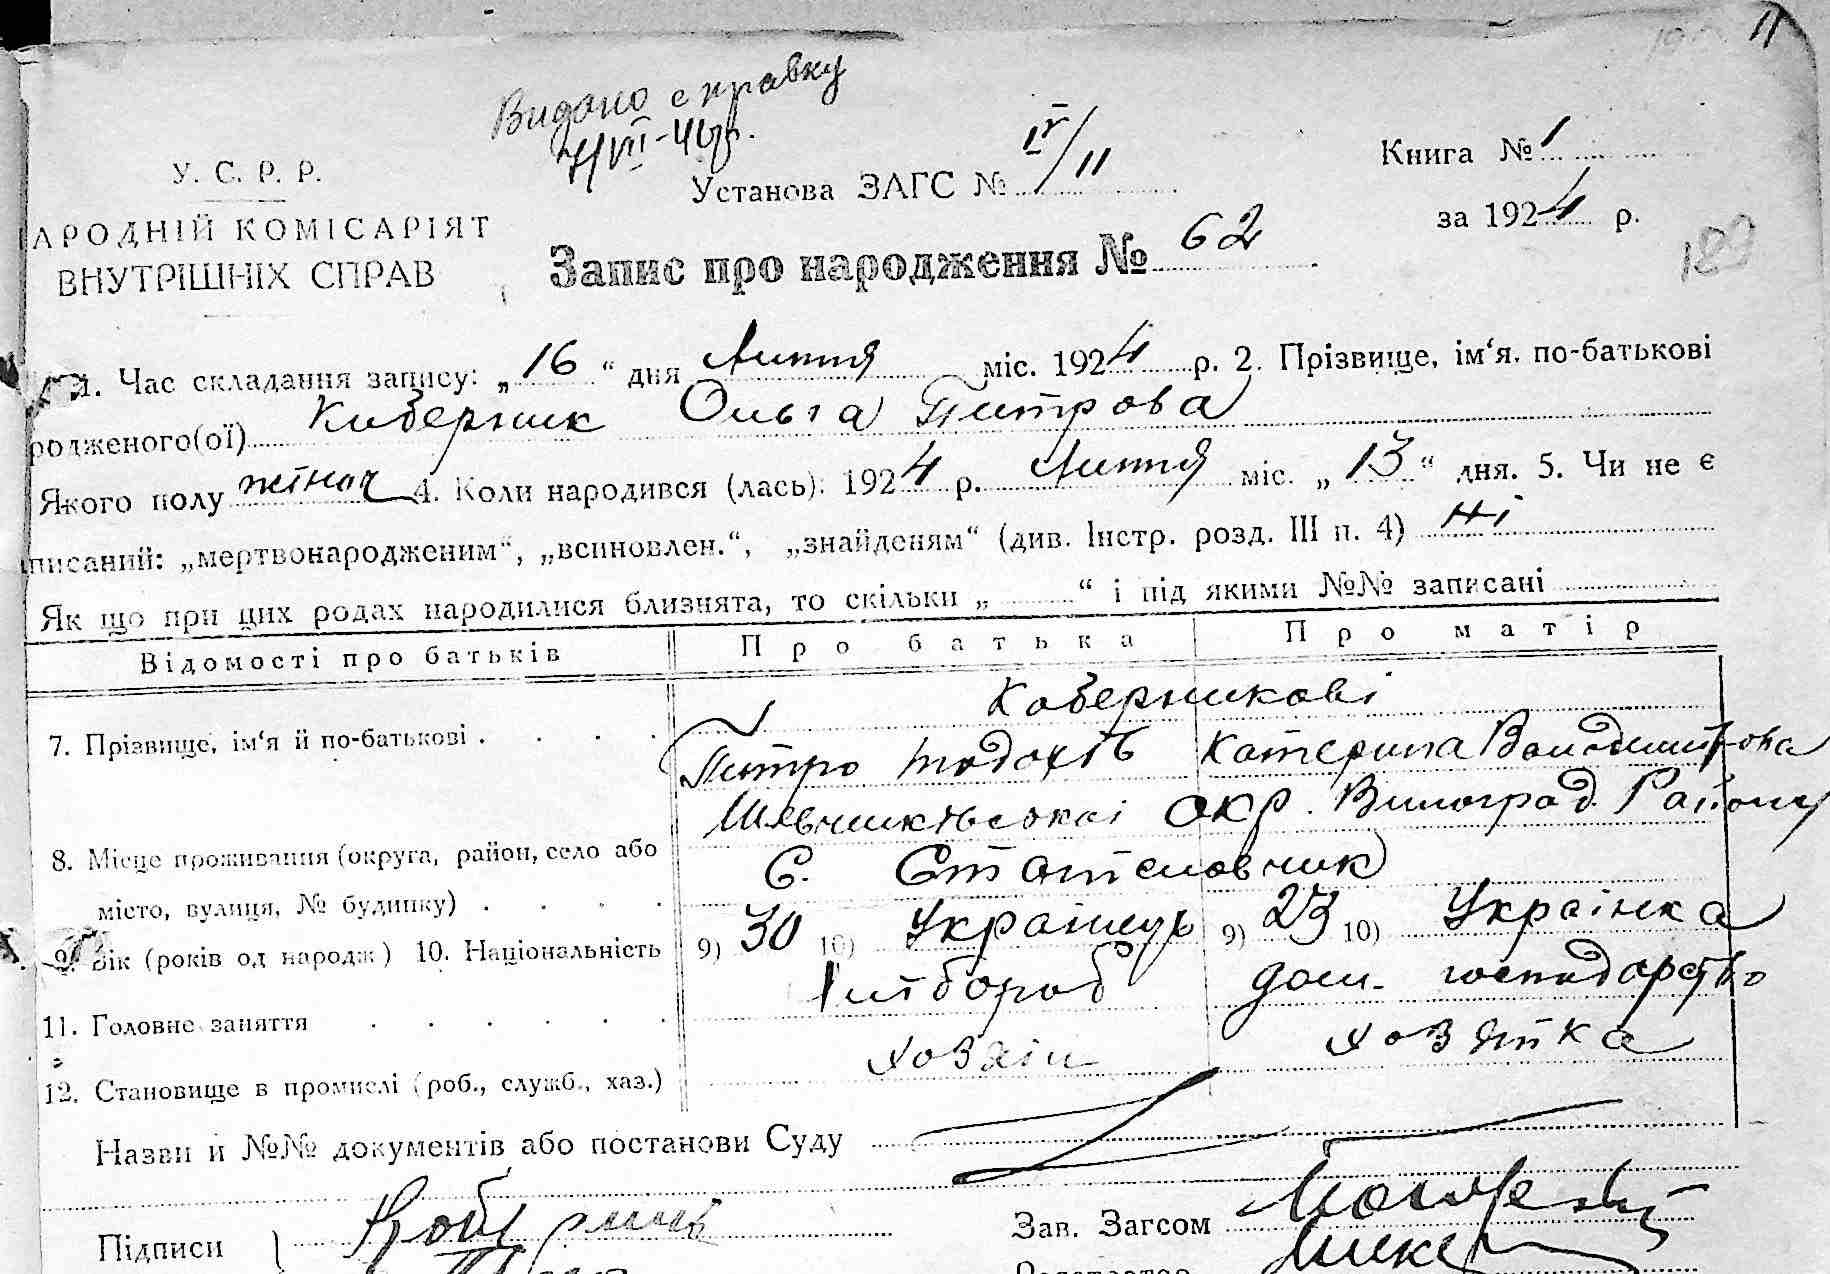 11
Видано справку
7/VII-46р.
У. С. Р. Р.
АРОДНІЙ КОМІСАРІЯТ
ВНУТРІШНІХ СПРАВ
Установа ЗАГС № IV/11
Книга № 1
за 1924 р.
Запис про народження № 62
189
1. Час складання запису: „16“ дня Липня міс. 1924 р. 2. Прізвище, ім‘я, по-батькові
родженого(ої) Коберник Ольга Питрова
Якого полу жіноч 4. Коли народився (лась): 1924 р. Липня міс. „13“ дня. 5. Чи не є
писаний: „мертвонародженим“, „всиновлен.“, „знайденям“ (див. Інстр. розд. III п. 4) Ні
Як що при цих родах народилися близнята, то скільки „ “ і під якими №№ записані
Відомості про батьків Про батька Про матір
Коберникові
7. Прізвище, ім‘я й по-батькові . . . . Питро Тодосів Катерина Володимирова
Шевченківської окр. Виноград. Району
8. Місце проживання (округа, район, село або
С. Стотеловчик
місто, вулиця, № будинку) . . . .
9. Вік (років од народж) 10. Національність 9) 30 10) Українець 9) 23 10) Українка
11. Головне заняття . . . . . . Хлібороб Дом. господарство
12. Становище в промислі (роб., служб., хаз.) хозяїн хозяйка
Назви й №№ документів або постанови Суду
Підписи
Зав. Загсом